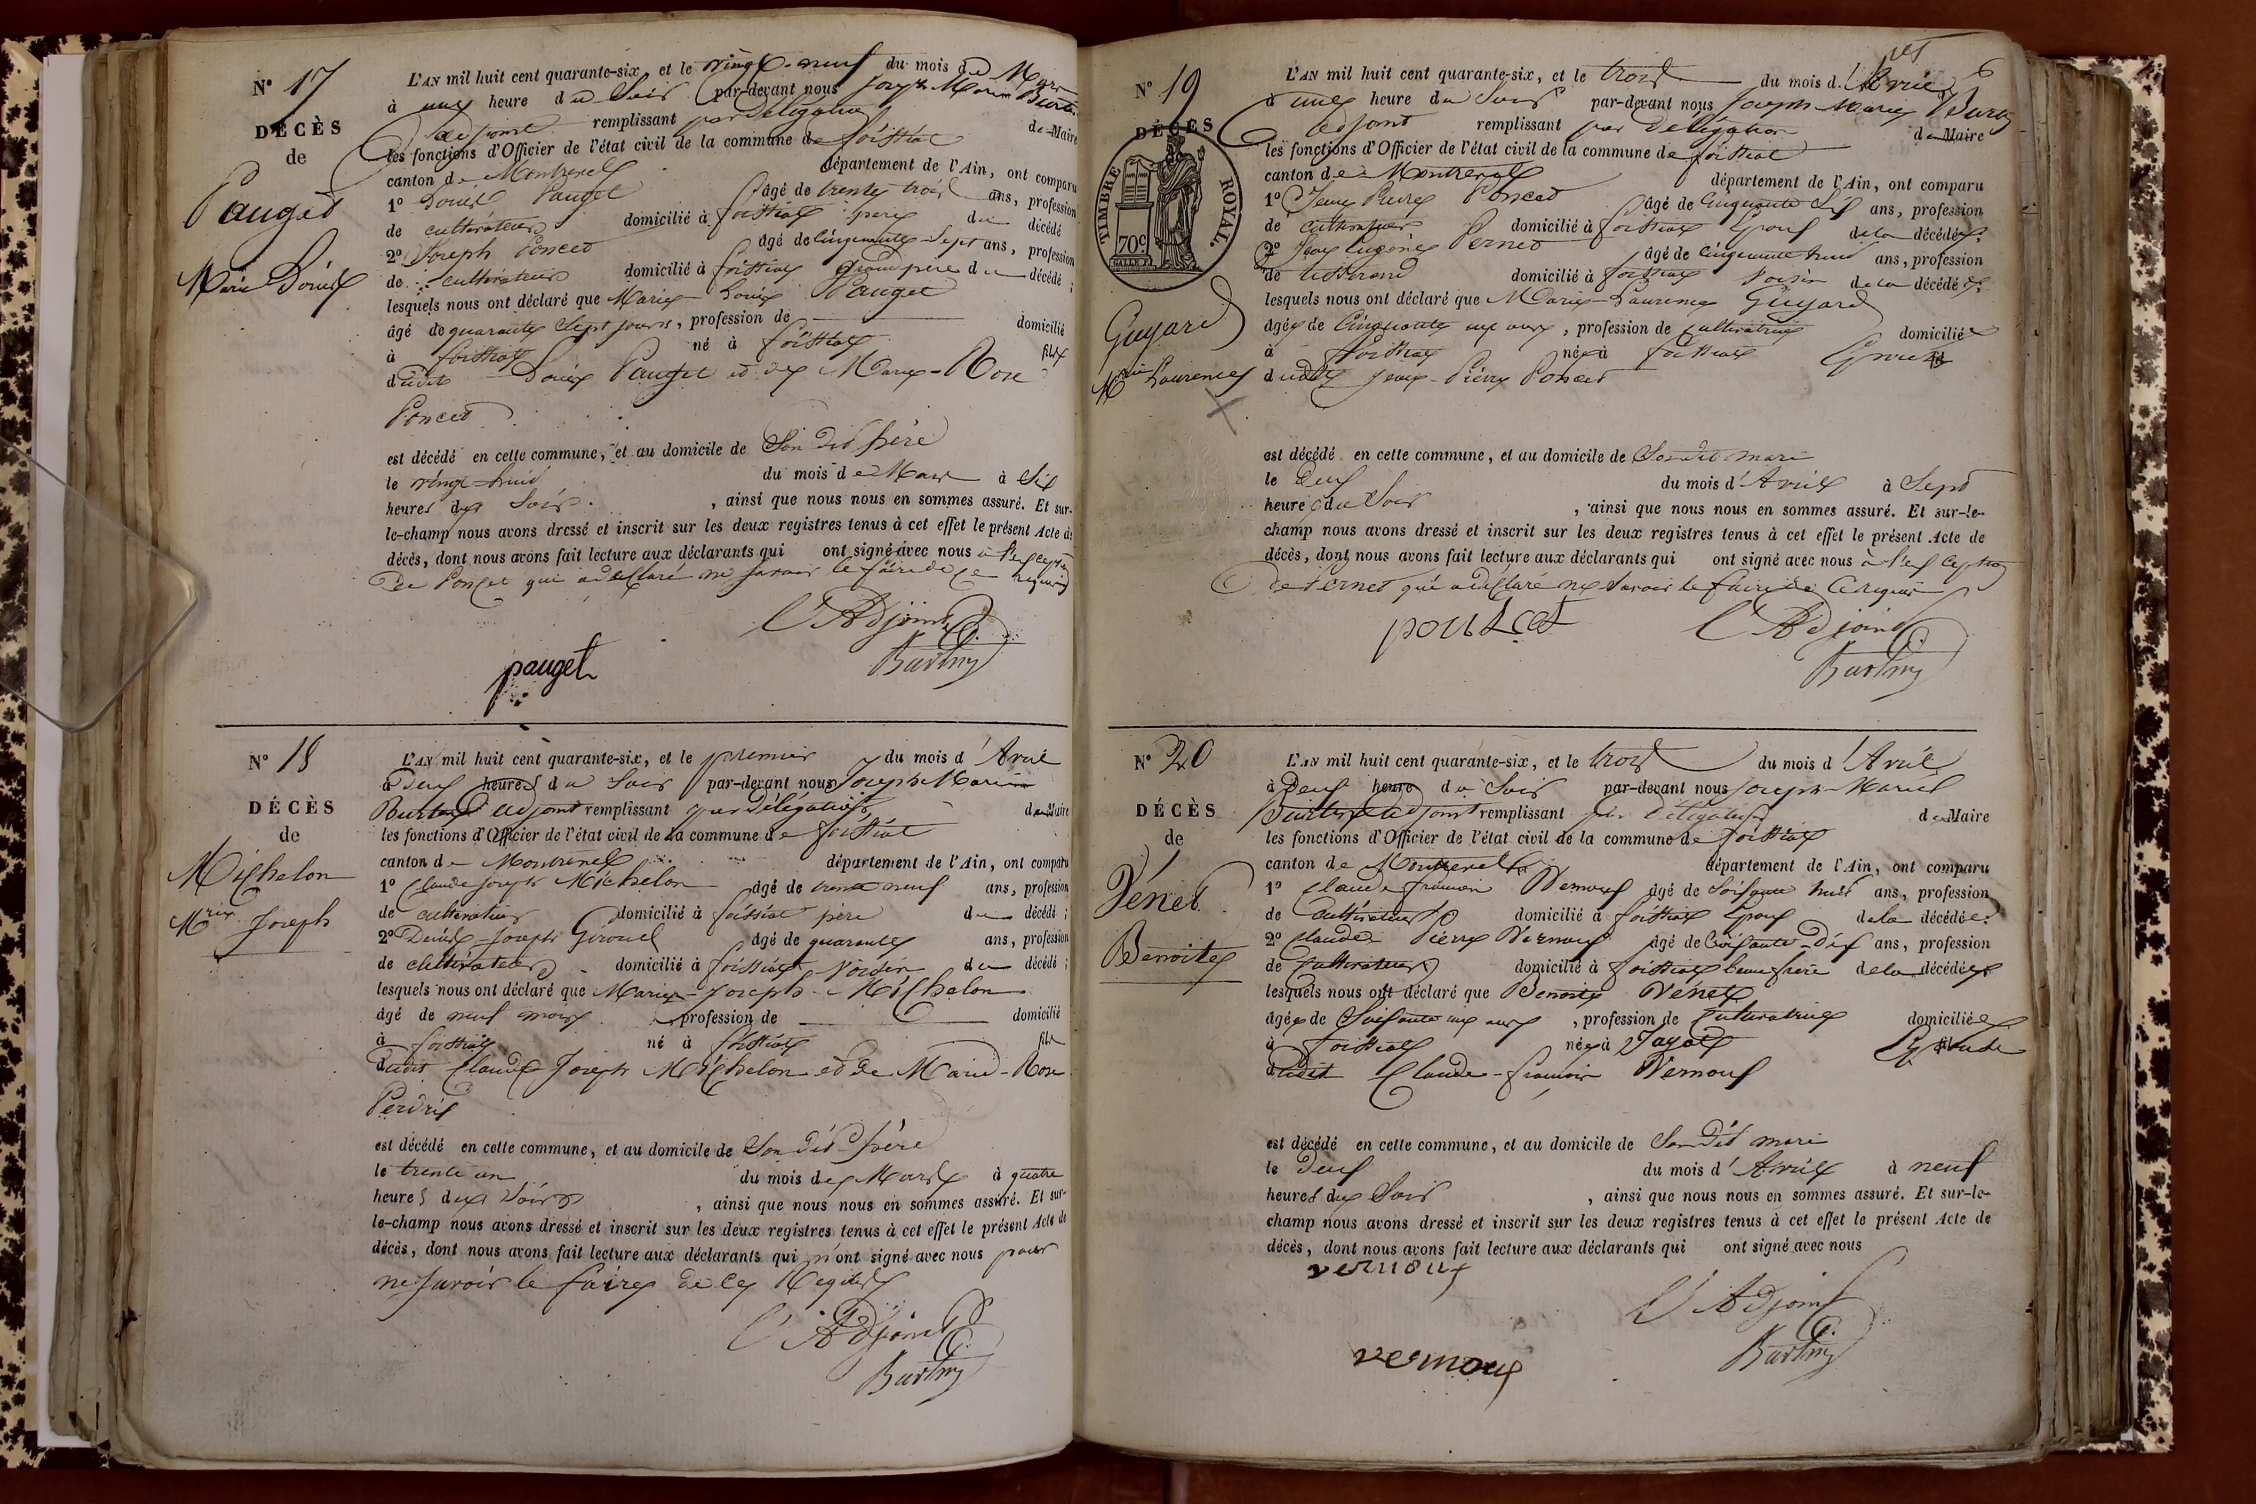 N° 17
DÉCÈS
de
Pauget
Marie Louise
L'AN mil huit cent quarante-six, et le vingt-neuf du mois de Mars
à une heure du Soir par-devant nous Joseph Marie
adjoint remplissant par Délégation de Maire
les fonctions d'Officier de l'état civil de la commune de foissiat
canton de Montrevel département de l'Ain, ont comparu
1° Louis Pauget âgé de trente trois ans, profession
de cultivateur domicilié à foissiat père du décédé
2° Joseph Poncet âgé de cinquante-sept ans, profession
de cultivateur domicilié à foissiat grand père du décédé ;
lesquels nous ont déclaré que Marie Louise Pauget
âgé de quarante sept jours, profession de domicilié
à foissiat né à foissiat fille
dudit Louis Pauget et de Marie-Rose
Poncet
est décédé en cette commune, et au domicile de Son dit père
le vingt-huit du mois de Mars à Six
heures du Soir , ainsi que nous nous en sommes assuré. Et sur-
le-champ nous avons dressé et inscrit sur les deux registres tenus à cet effet le présent Acte de
décès, dont nous avons fait lecture aux déclarants qui ont signé avec nous à l'exception
de Poncet qui a déclaré ne savoir le faire de ce requis
L'Adjoint
pauget
N° 18
DÉCÈS
de
Michelon
Mrie Joseph
L'AN mil huit cent quarante-six, et le premier du mois d'Avril
à Deux heures du Soir par-devant nous Joseph Marie
adjoint remplissant par délégation de Maire
les fonctions d'Officier de l'état civil de la commune de foissiat
canton de Montrevel département de l'Ain, ont comparu
1° Claude Joseph Michelon âgé de trente neuf ans, profession
de cultivateur domicilié à foissiat père du décédé ;
2° Denis Joseph âgé de quarante ans, profession
de cultivateur domicilié à foissiat Voisin du décédé ;
lesquels nous ont déclaré que Marie-Joseph Michelon
âgé de neuf mois profession de domicilié
à foissiat né à foissiat fille
dudit Claude Joseph Michelon et de Marie-Rose
Perdrix
est décédé en cette commune, et au domicile de Son dit père
le trente un du mois de Mars à quatre
heures du Soir , ainsi que nous nous en sommes assuré. Et sur-
le-champ nous avons dressé et inscrit sur les deux registres tenus à cet effet le présent Acte de
décès, dont nous avons fait lecture aux déclarants qui n'ont signé avec nous pour
ne savoir le faire de ce Requis
L'Adjoint
N° 19
DÉCÈS
TIMBRE ROYAL.
70c
Guyard
Mrie Laurence
L'AN mil huit cent quarante-six, et le trois du mois d'Avril
à une heure du Soir par-devant nous Joseph-Marie
adjoint remplissant par délégation de Maire
les fonctions d'Officier de l'état civil de la commune de foissiat
canton de Montrevel département de l'Ain, ont comparu
1° Jean Pierre Poncet âgé de Cinquante Six ans, profession
de cultivateur domicilié à foissiat Epoux de la décédée ;
2° Jean Pernet âgé de cinquante huit ans, profession
de tisserand domicilié à foissiat Voisin de la décédée ;
lesquels nous ont déclaré que Marie-Laurence Guyard
âgée de Cinquante un ans, profession de cultivatrice domiciliée
à foissiat née à foissiat Epouse
dudit Jean-Pierre Poncet
est décédé en cette commune, et au domicile de Son dit mari
le Deux du mois d'Avril à Sept
heures du Soir , ainsi que nous nous en sommes assuré. Et sur-le-
champ nous avons dressé et inscrit sur les deux registres tenus à cet effet le présent Acte de
décès, dont nous avons fait lecture aux déclarants qui ont signé avec nous à l'exception
de Pernet qui a déclaré ne savoir le faire de ce requis
L'Adjoint
N° 20
DÉCÈS
de
Vénet
Benoite
L'AN mil huit cent quarante-six, et le trois du mois d'Avril
à Deux heure du Soir par-devant nous Joseph-Marie
adjoint remplissant par délégation de Maire
les fonctions d'Officier de l'état civil de la commune de foissiat
canton de Montrevel département de l'Ain, ont comparu
1° Claude françois Vernoux âgé de Soixante huit ans, profession
de Cultivateur domicilié à foissiat Epoux de la décédée ;
2° Claude Pierre Vernoux âgé de Soixante-Dix ans, profession
de Cultivateur domicilié à foissiat beau frère de la décédée
lesquels nous ont déclaré que Benoite Vénet
âgée de Soixante un ans , profession de Cultivatrice domiciliée
à foissiat née à Jayat Epouse
dudit Claude-françois Vernoux
est décédé en cette commune, et au domicile de Son dit mari
le Deux du mois d'Avril à neuf
heures du Soir , ainsi que nous nous en sommes assuré. Et sur-le-
champ nous avons dressé et inscrit sur les deux registres tenus à cet effet le présent Acte de
décès, dont nous avons fait lecture aux déclarants qui ont signé avec nous
vernoux
L'Adjoint
vernoux